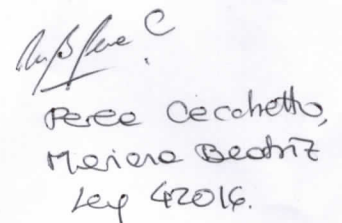 Perez Cecchetto,
Mariana Beatriz
Leg 42016.